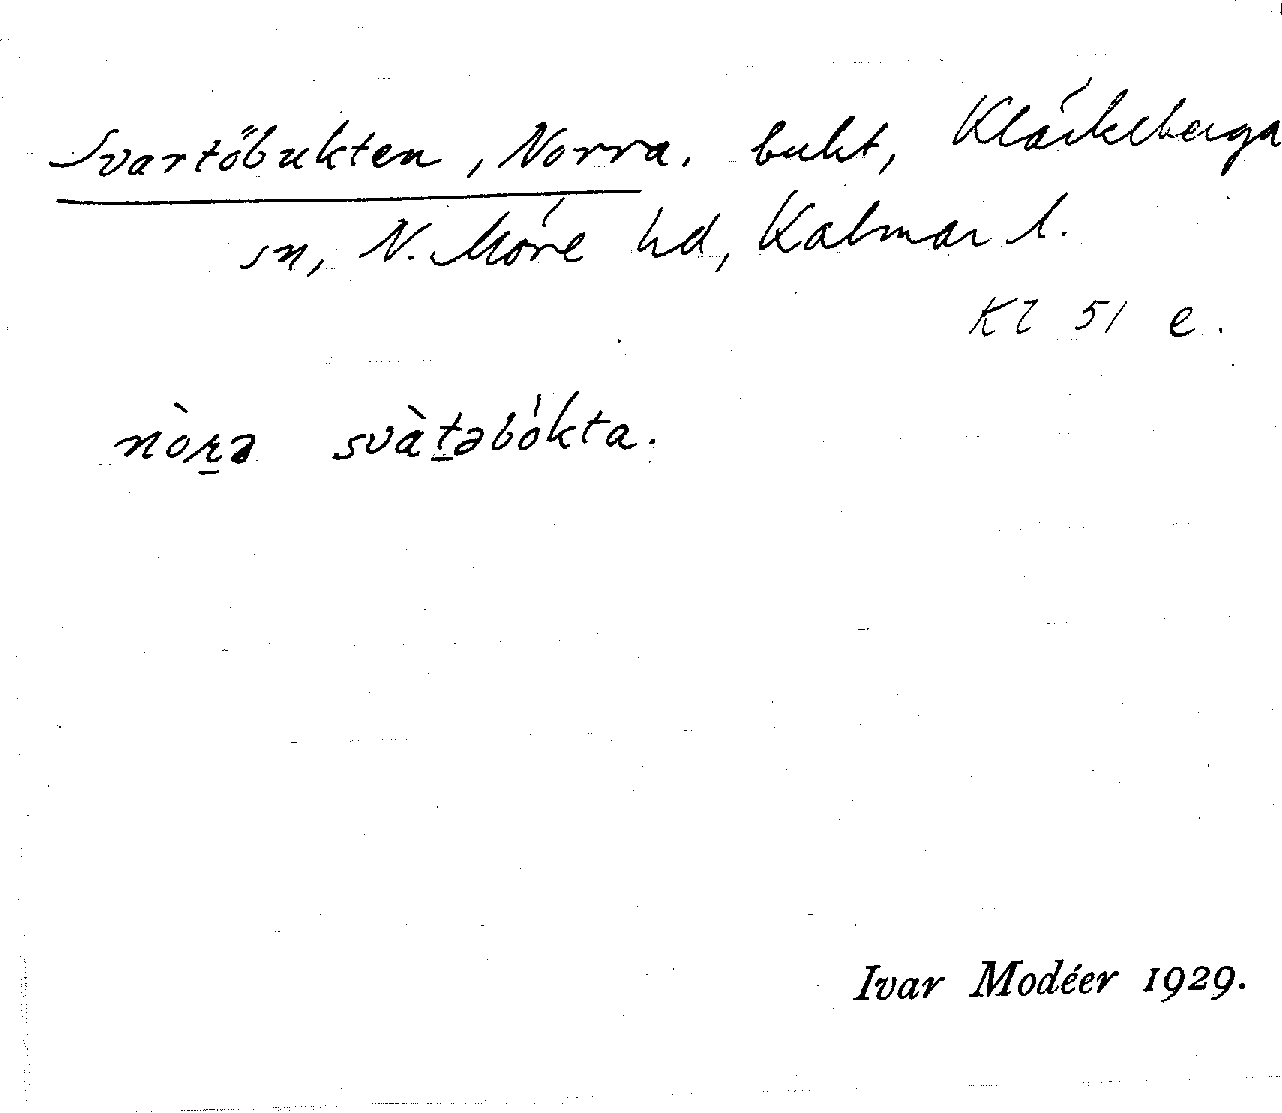 Svartöbukten, Norra. bukt, Kläckeberga
sn, N. Möre hd, Kalmar l.
Kl 51 e.
nòr̲ə svàt̲əbókta.
Ivar Modéer 1929.